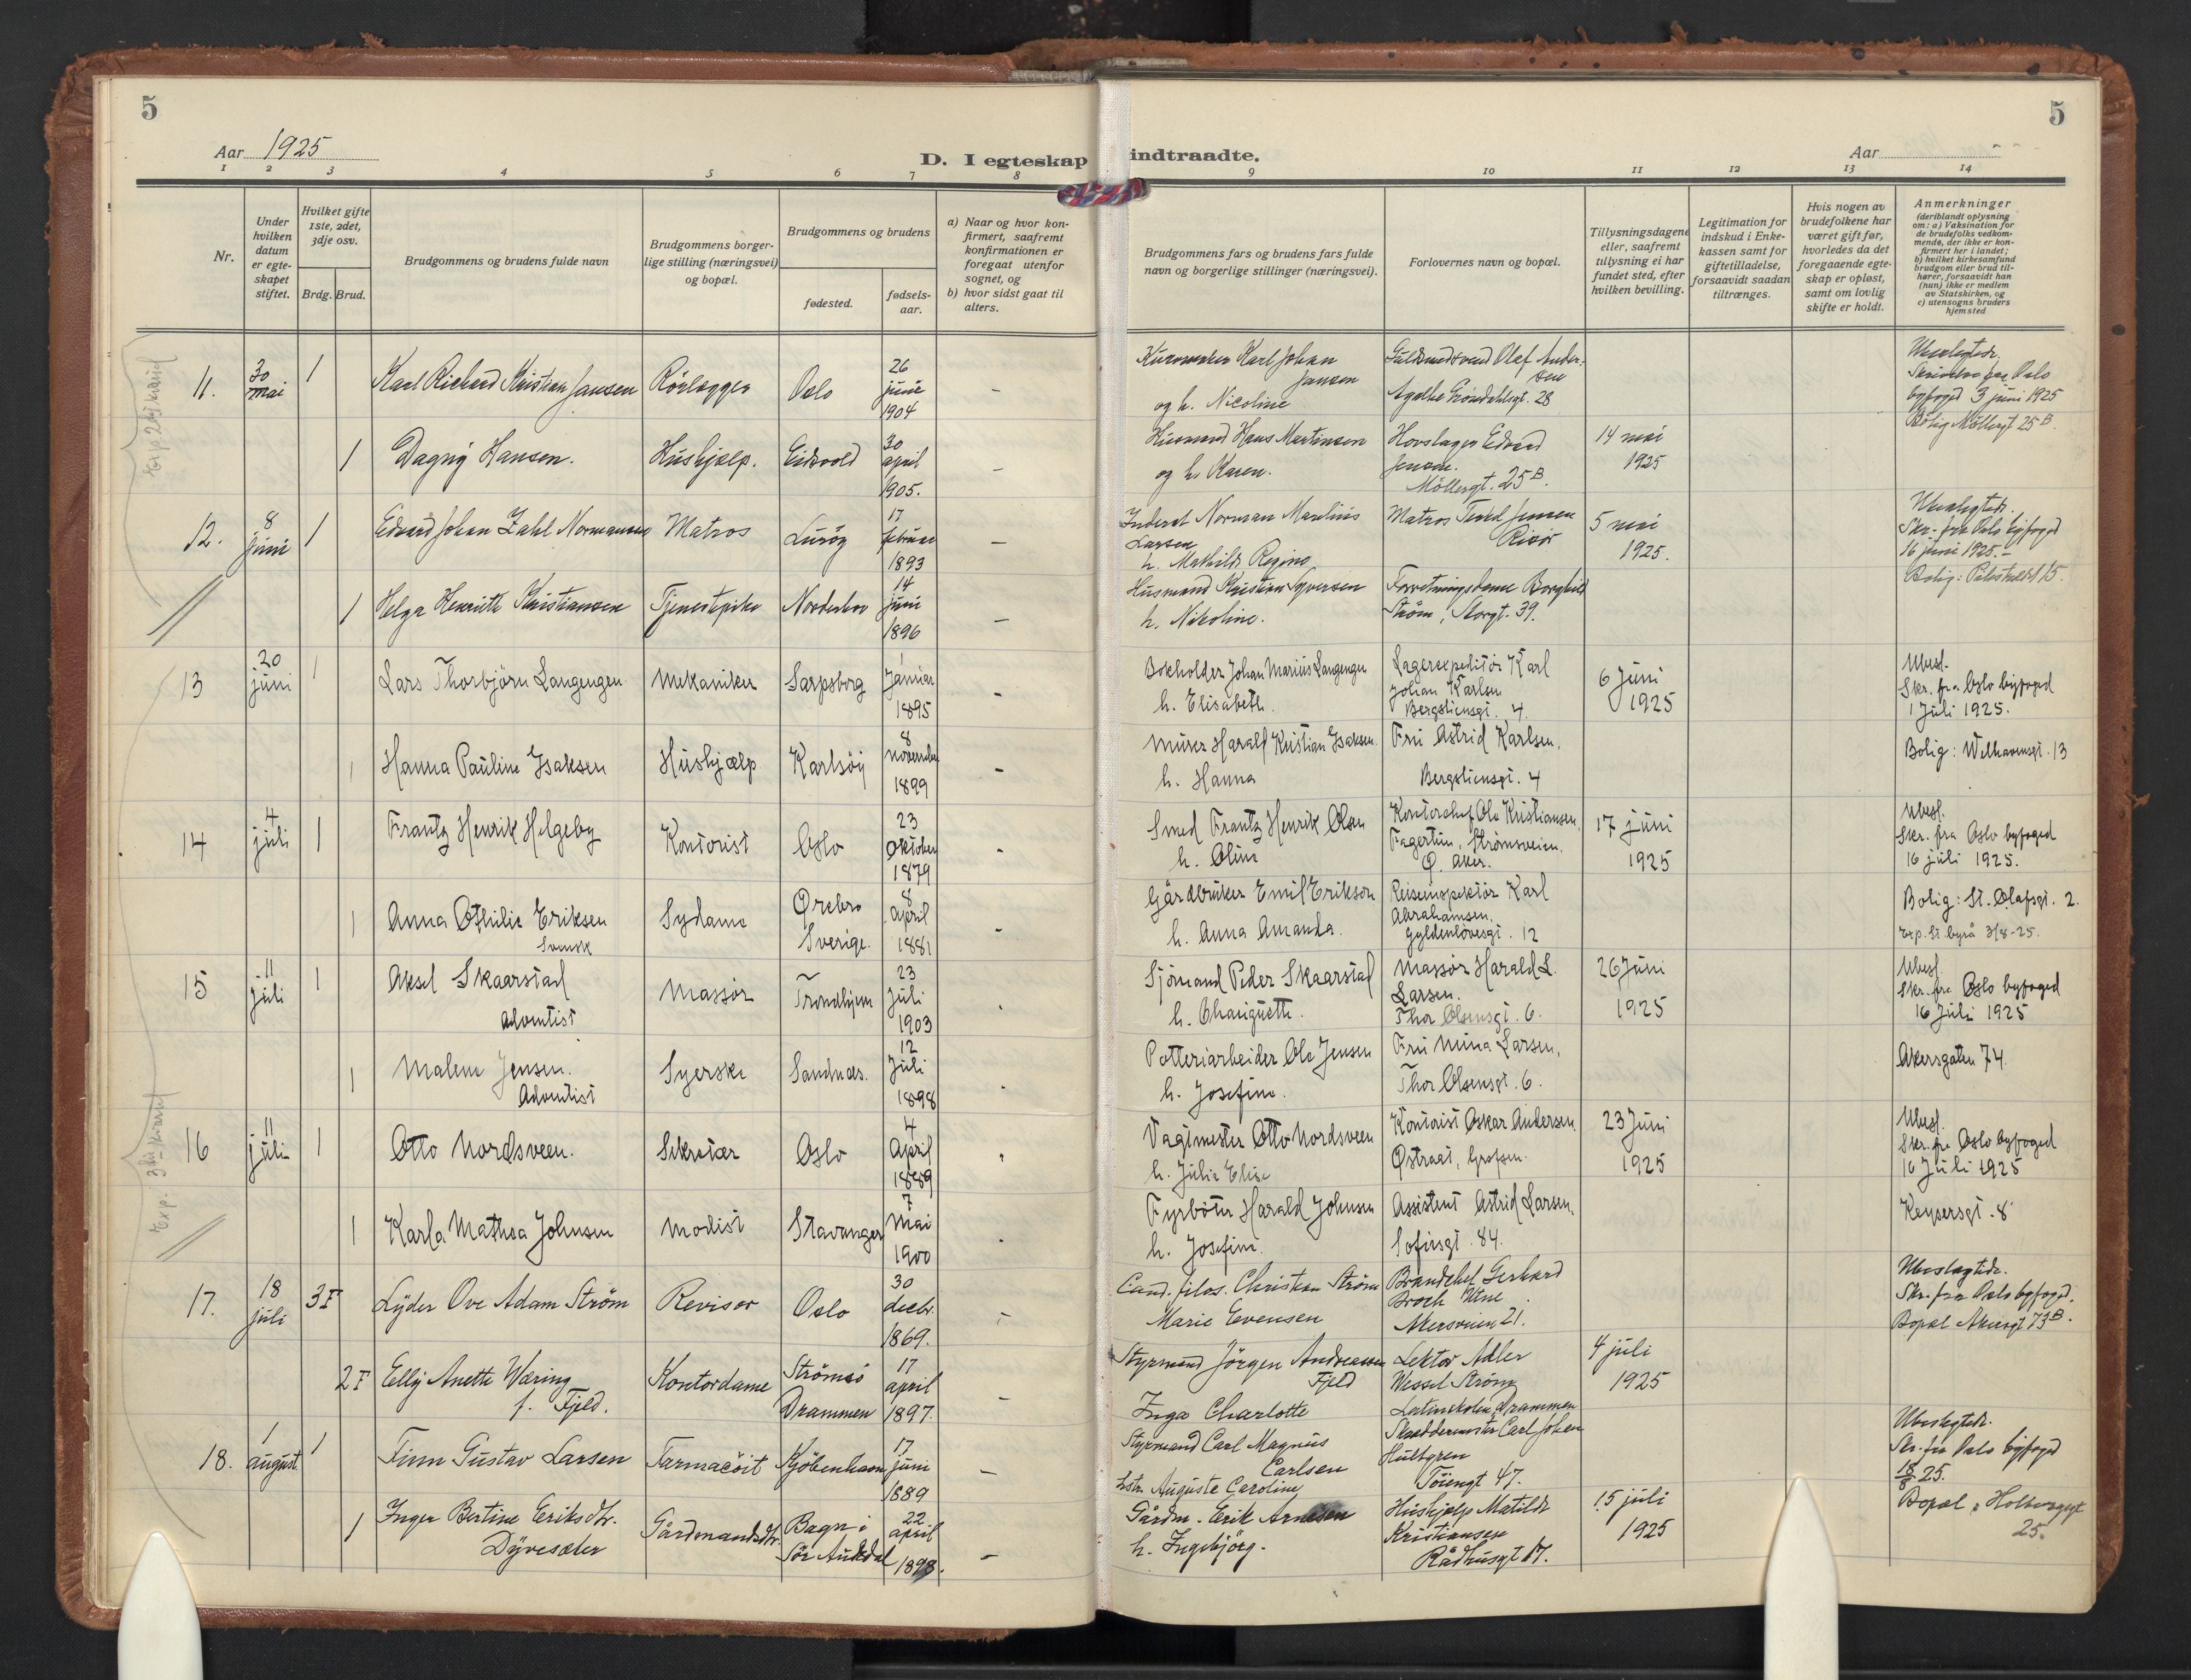 5
5
Aar 1925
D. I egteskap indtraadte.
Aar
1 2 3 4 5 6 7 8 9 10 11 12 13 14
Nr.
Under hvilken datum er egteskapet stiftet.
Hvilket gifte 1ste, 2det, 3dje osv.
Brdg. Brud.
Brudgommens og brudens fulde navn
Brudgommens borgerlige stilling (næringsvei) og bopæl.
Brudgommens og brudens
fødested.
fødsels-aar.
a) Naar og hvor konfirmert, saafremt konfirmationen er foregaat utenfor sognet, og
b) hvor sidst gaat til alters.
Brudgommens fars og brudens fars fulde navn og borgerlige stillinger (næringsvei).
Forlovernes navn og bopæl.
Tillysningsdagene eller, saafremt tillysning ei har fundet sted, efter hvilken bevilling.
Legitimation for indskud i Enkekassen samt for giftetilladelse, forsaavidt saadan tiltrænges.
Hvis nogen av brudefolkene har været gift før, hvorledes da det foregaaende egteskap er opløst, samt om lovlig skifte er holdt.
Anmerkninger
(deriblandt oplysning om: a) Vaksination for de brudefolks vedkommende, der ikke er konfirmert her i landet; b) hvilket kirkesamfund brudgom eller brud tilhører, forsaavidt han (hun) ikke er medlem av Statskirken, og c) utensogns bruders hjemsted
11. 30 mai 1 Karl Richard Kristian Jansen Rörlægger Oslo 26 juni 1904 –
Karl Johan Jansen og h. Nicoline
Olaf Andersen
Agathe Gröndahlsgt. 28
Ubeslegtede.
Skrivelse fra Oslo byfoged 3 juni 1925
Bolig Möllergt 25 B.
1 Dagny Hansen. Hushjælp. Eidsvold 30 april 1905. –
Husmand Hans Martinsen og h. Karen.
Hovslager Edvard Jensen.
Möllergt. 25 B.
14 mai 1925
12. 8 juni 1 Edvard Johan Zahl Normansen Matros Luröy 17 februar 1893 –
Inderst Norman Marelius Larsen
h. Mathilde Regine
Matros Jensen
5 mai 1925.
Ubeslegtede.
Skr. fra Oslo byfoged 16 juni 1925.–
Bolig: Pilestrædet 15.
1 Helga Henriette Kristiansen Tjenestepike Norderhov 14 juni 1896 –
Husmand Kristian Syversen
h. Nikoline.
Forretningsdame Borghild Ström, Storgt. 39.
13 20 juni 1 Lars Thorbjörn Langengen Mekaniker Sarpsborg 1 Januar 1895 –
Bokholder Johan Marius Langengen
h. Elisabeth.
Lagerexpeditör Karl Johan Karlsen
Bergsliensgt. 4.
6 Juni 1925
Ubesl.
Skr. fra Oslo byfoged
1 Juli 1925.
1 Hanna Pauline Isaksen Hushjælp Karlsöy 8 november 1899 –
Murer Haralf Kristian Isaksen.
h. Hanna
Fru Astrid Karlsen.
Bergsliensgt. 4
Bolig: Welhavensgt. 13
14 4 juli 1 Frantz Henrik Helgeby Kontorist Oslo 23 Oktober 1879 –
Smed Frantz Henrik Olsen
h. Oline
Kontorchef Ole Kristiansen,
Fagertun, Strömsveien.
Ø. Aker.
17 juni 1925
Ubesl.
Skr. fra Oslo byfoged
16 juli 1925.
1 Anna Othilie Eriksen
Svensk
Sydame Örebro Sverige. 8 April 1881
Gårdbruker Emil Erikson
h. Anna Amanda.
Reiseinspektör Karl Abrahamsen,
Gyldenlövesgt. 12
Bolig: St. Olafsgt. 2.
Exp. St. byrå 3/8-25.
15 11 juli 1 Aksel Skaarstad
Adventist
Massör Trondhjem 23 Juli 1903
Sjömand Peder Skaarstad
Massör Harald L. Larsen.
Thor Olsensgt. 6.
26 Juni 1925
Ubesl.
Skr. fra Oslo byfoged
16 Juli 1925
1 Malene Jensen.
Adventist
Syerske Sandnæs. 12 Juli 1898
Potteriarbeider Ole Jensen
h. Josefine.
Fru Mina Larsen,
Thor Olsensgt. 6.
Akersgaten 74.
16 11 juli 1 Otto Nordsveen. Sekretær Oslo 4 April 1889
Vagtmester Otto Nordsveen
h. Julie Elise
Kontorist Oskar Andersen.
Östraat, Grefsen.
23 Juni 1925
Ubesl.
Skr. fra Oslo byfoged
16 Juli 1925
1 Karla Mathea Johnsen Modist Stavanger 7 Mai 1900
Fyrböter Harald Johnsen
h. Josefine.
Assistent Astrid Larsen.
Sofiesgt. 84.
Keysersgt. 8
17. 18 juli 3 F Lyder Ove Adam Ström Revisor Oslo 30 decbr. 1869. –
Cand. filos. Christian Ström
Marie Evensen
Brandchef Gerhard Broch Utne.
Akersveien 21.
Ubeslegtede.
Skr. fra Oslo byfoged.
Bopæl Akersgt 73 B.
2 F Elly Anette Wæring
f. Fjeld.
Kontordame Strömsö Drammen 17 april 1897. –
Styrmand Jörgen Andreassen Fjeld
Inga Charlotte
Lektor Adler Wessel Ström
Latinskolen, Drammen
4 juli 1925
18. 1 august 1 Finn Gustav Larsen Farmacöit Kjöbenhavn 17 juni 1889 –
Styrmand Carl Magnus Carlsen
Auguste Caroline
Skræddermester Carl Johan Hultgren
Töiengt 47.
Ubeslegtede.
Skr. fra Oslo byfoged
18/8 25.
1 Inger Bertine Eriksdtr.
Dyvesæter
Gårdmandsdtr. Bagn i Sör Aurdal 22 april 1898. –
Gårdm. Erik Arnesen
h. Ingebjörg.
Hushjælp Matilde Kristiansen
Rådhusgt 17.
15 juli 1925
Bopæl: Holbergsgt 25.
Exp. 2det kvartal
Exp. 3dje kvartal